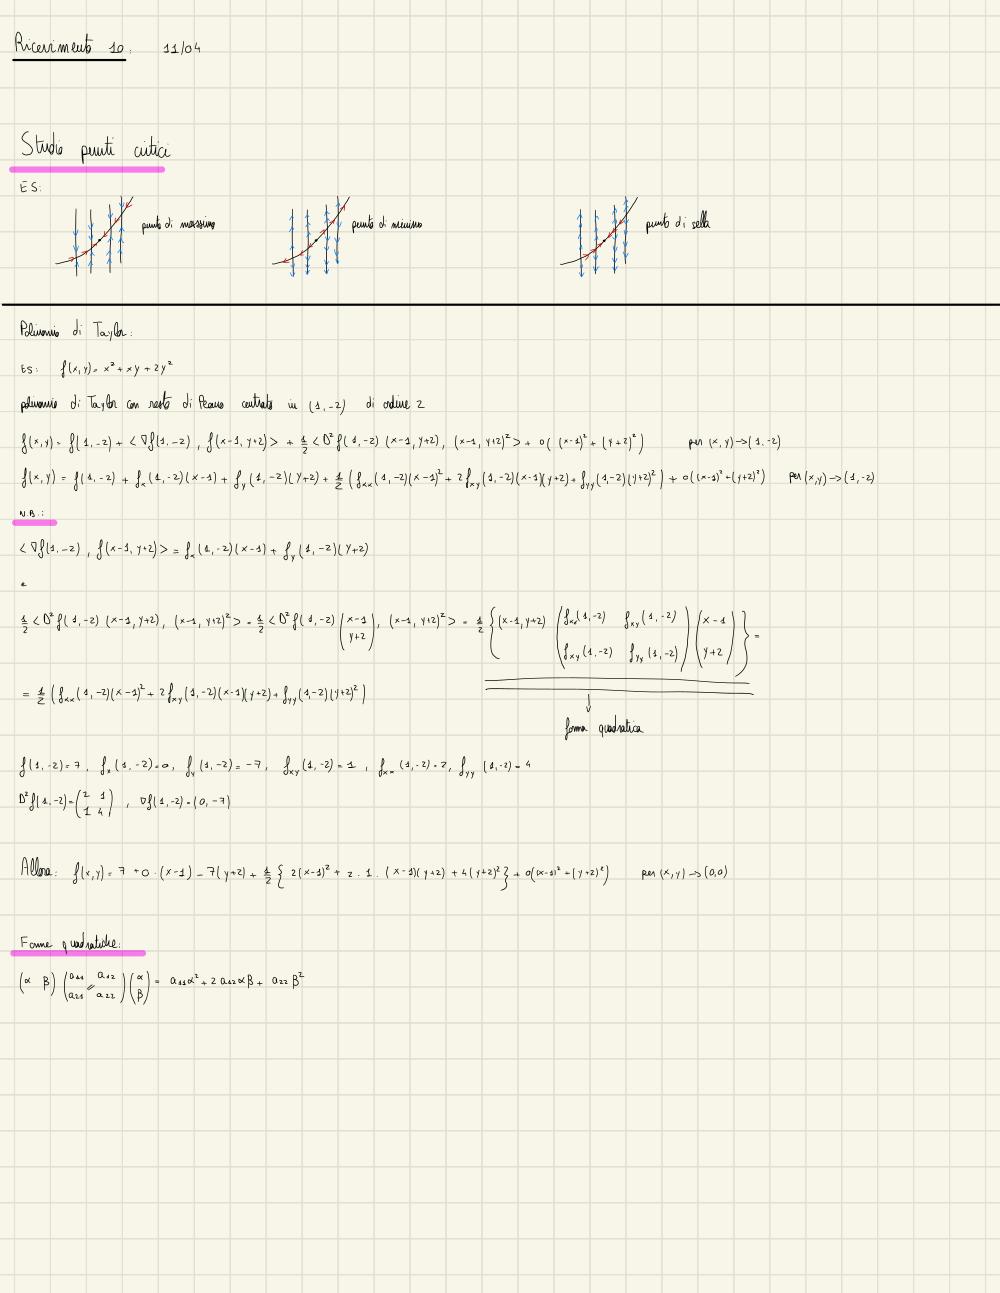 Ricevimento 10: 11/04
Studio punti critici
ES:
punto di massimo punto di minimo punto di sella
Polinomio di Taylor:
ES: f(x,y)= x² + xy + 2y²
polinomio di Taylor con resto di Peano centrato in (1,-2) di ordine 2
f(x,y)= f(1,-2) + <∇f(1,-2), f(x-1, y+2)> + 1/2 <D²f(1,-2) (x-1, y+2), (x-1, y+2)²> + o((x-1)² + (y+2)²) per (x,y)→(1,-2)
f(x,y) = f(1,-2) + fₓ(1,-2)(x-1) + f_y(1,-2)(y+2) + 1/2 (fₓₓ(1,-2)(x-1)² + 2f_xy(1,-2)(x-1)(y+2) + f_yy(1,-2)(y+2)²) + o((x-1)²+(y+2)²) per (x,y)→(1,-2)
N.B.:
<∇f(1,-2), f(x-1, y+2)> = fₓ(1,-2)(x-1) + f_y(1,-2)(y+2)
e
1/2 <D²f(1,-2) (x-1, y+2), (x-1, y+2)²> = 1/2 <D²f(1,-2) (x-1 y+2), (x-1, y+2)²> = 1/2 {(x-1, y+2) (fₓₓ(1,-2) f_xy(1,-2) f_xy(1,-2) f_yy(1,-2)) (x-1 y+2)} =
= 1/2 (fₓₓ(1,-2)(x-1)² + 2f_xy(1,-2)(x-1)(y+2) + f_yy(1,-2)(y+2)²)
forma quadratica
f(1,-2)=7, fₓ(1,-2)=0, f_y(1,-2)=-7, f_xy(1,-2)=1, fₓₓ(1,-2)=2, f_yy(1,-2)=4
D²f(1,-2)=(2 1 1 4), ∇f(1,-2)=(0,-7)
Allora: f(x,y)= 7 +0·(x-1) -7(y+2) + 1/2 {2(x-1)² + 2·1·(x-1)(y+2) + 4(y+2)²} + o((x-1)²+(y+2)²) per (x,y)→(0,0)
Forme quadratiche:
(α β) (a₁₁ a₁₂ a₂₁ a₂₂) (α β) = a₁₁α² + 2a₁₂αβ + a₂₂β²